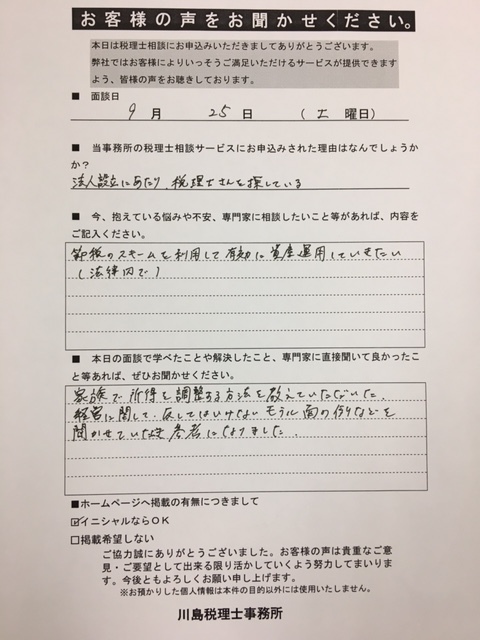 お客様の声をお聞かせください。
本日は税理士相談にお申込みいただきましてありがとうございます。
弊社ではお客様によりいっそうご満足いただけるサービスが提供できます
よう、皆様の声をお聴きしております。
■ 面談日
9 月 25 日 (土 曜日)
■ 当事務所の税理士相談サービスにお申込みされた理由はなんでしょうか
か?
法人設立にあたり、税理士さんを探している
■ 今、抱えている悩みや不安、専門家に相談したいこと等があれば、内容を
ご記入ください。
節税のスキームを利用して有効に資産運用していきたい
(法律内で)
■ 本日の面談で学べたことや解決したこと、専門家に直接聞いて良かったこ
と等あれば、ぜひお聞かせください。
家族で所得を調整する方法を教えていただいた。
経営に関して、反してはいけないモラル面の例などを
聞かせていただき参考になりました。
■ホームページへ掲載の有無につきまして
☑イニシャルならOK
□掲載希望しない
ご協力誠にありがとうございました。お客様の声は貴重なご意
見・ご要望として出来る限り活かしていくよう努力してまいりま
す。今後ともよろしくお願い申し上げます。
※お預かりした個人情報は本件の目的以外には使用いたしません。
川島税理士事務所